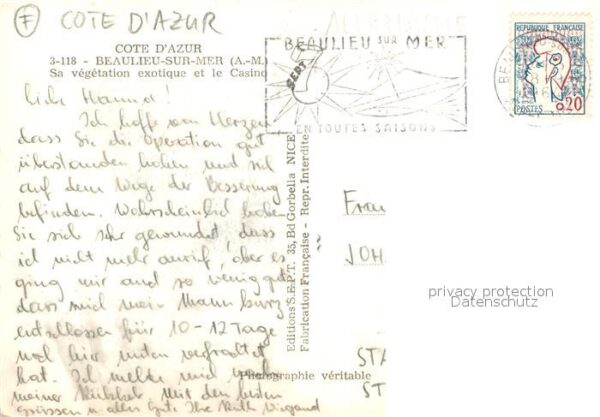 F COTE D'AZUR
ALLEMAGNE
COTE D'AZUR
3-118 - BEAULIEU-SUR-MER (A.-M.)
Sa végétation exotique et le Casino
BEAULIEU SUR MER
EN TOUTES SAISONS
REPUBLIQUE FRANÇAISE
0,20
POSTES
Liebe Hanna!
Ich hoffe von Herzen
dass Sie die Operation gut
überstanden haben und sich
auf dem Wege der Besserung
befinden. Wahrscheinlich haben
Sie sich sehr gewundert, dass
ich nicht mehr anrief, aber es
ging mir auch so wenig gut
dass mich mein Mann kurz
entschlossen für 10-12 Tage
nach hier unten verfrachtet
hat. Ich melde mich nach
meiner Rückkehr. Mit den besten
Grüssen u. alles Gute Ihre Ruth Wiegand
Editions S.E.P.T. 35, Bd Gorbella NICE
Fabrication Française - Repr. Interdite
Photographie véritable
Frau
JOH
STA
ST
privacy protection
Datenschutz